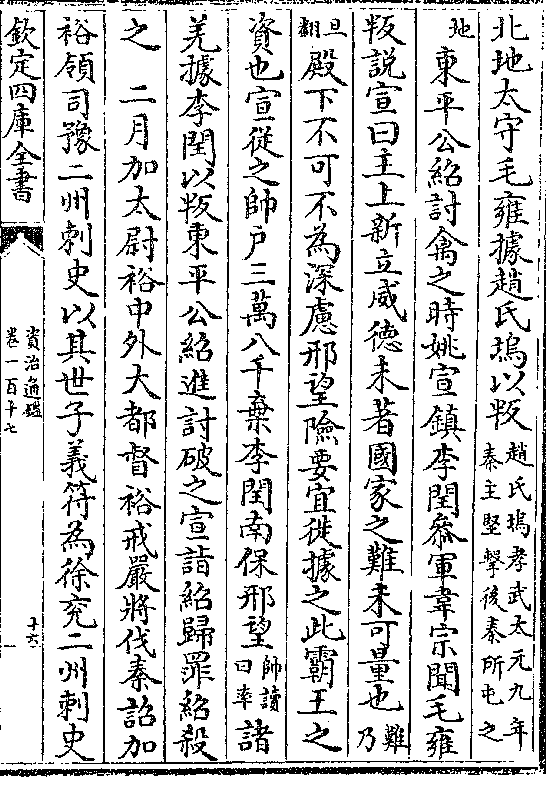 北地太守毛雍據趙氏塢以叛趙氏塢孝武太元九年
秦主堅擊後秦所屯之
地東平公紹討禽之時姚宣鎮李閏叅軍韋宗聞毛雍
叛說宣曰主上新立威德未著國家之難未可量也難
乃
旦
翻殿下不可不為深慮邢望險要宜徙據之此霸王之
資也宣從之帥户三萬八千棄李閏南保邢望帥讀
曰率諸
羌據李閏以叛東平公紹進討破之宣詣紹歸罪紹殺
之 二月加太尉裕中外大都督裕戒嚴將伐秦詔加
裕領司豫二州刺史以其世子義符為徐兖二州刺史
欽定四庫全書
資治通鑑
卷一百十七
十六